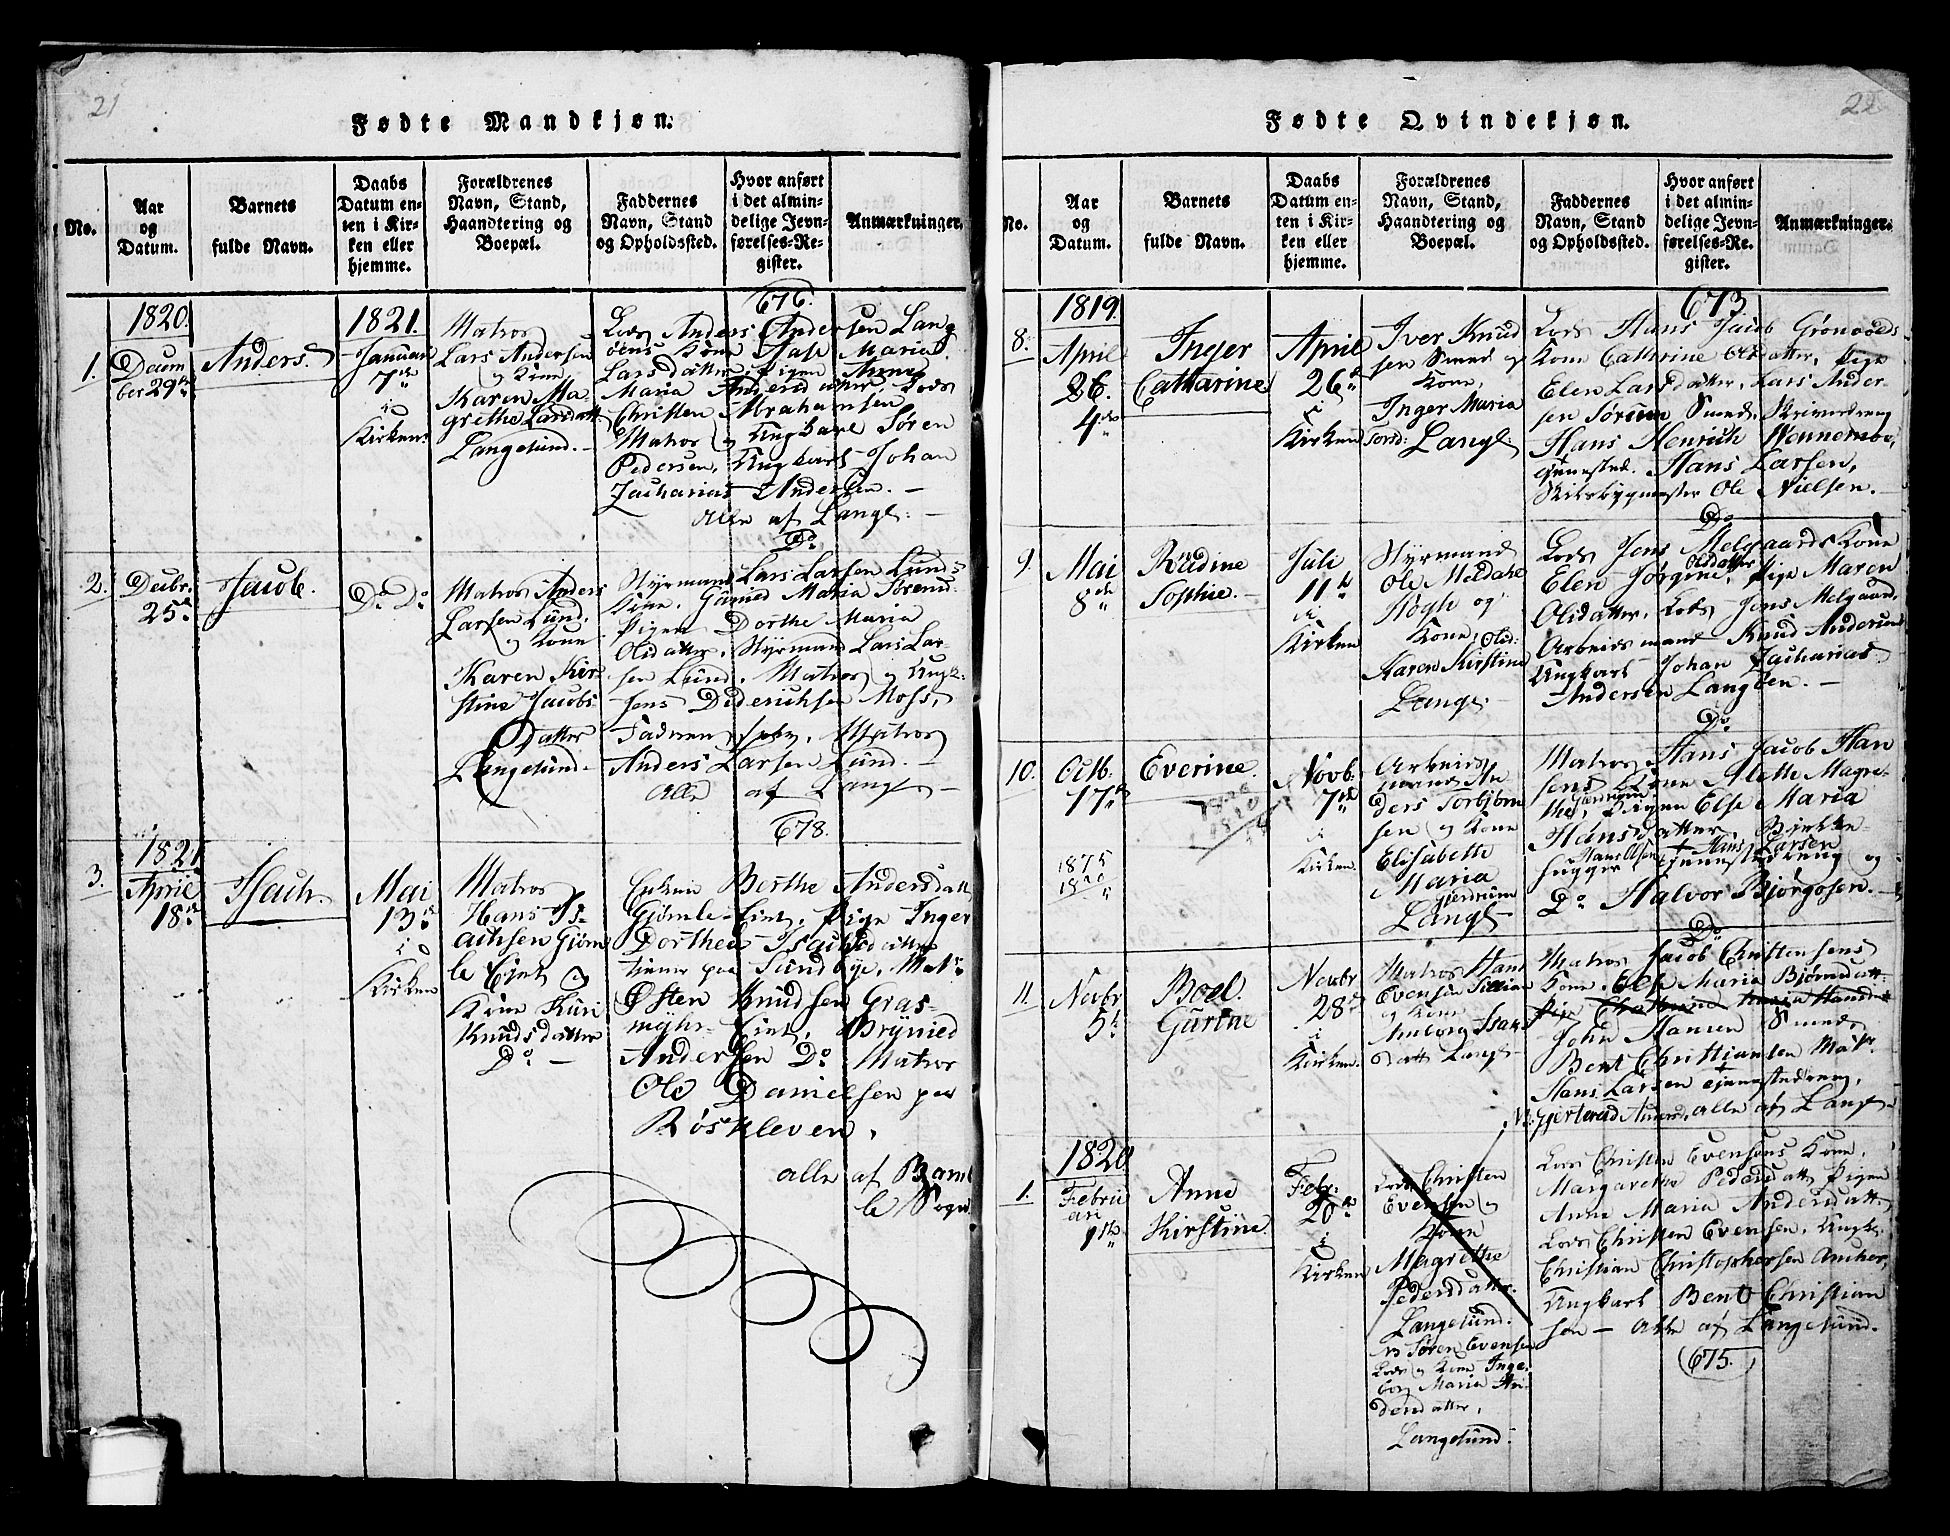 21
Fødte Mandkjøn.
No.
Aar
og
Datum.
Barnets
fulde Navn.
Daabs
Datum en-
ten i Kir-
ken eller
hjemme.
Forældrenes
Navn, Stand,
Haandtering og
Boepæl.
Faddernes
Navn, Stand
og Opholdssted.
Hvor anført
i det almin-
delige Jevn-
førelses-Re-
gister.
Anmærkninger.
1.
1820.
Decem
ber 29de
Anders.
1821.
Januari
7de
i
Kirken.
Matros
Lars Andersen
og Kone
Karen Ma-
grethe Larsdatt:
Langesund.
676.
Lods Anders Andersen Lang
øens Kone Maria
Larsdatter, Pigen Anne
Maria Andersdatter, Lods
Christen Abrahamsen
Matros og Ungkarl Søren
Pedersen, Ungkarl Johan
Zacharias Andersen. —
Alle af Langs: —
2.
Decbr.
25de
Jacob.
Do Do
Matros Anders
Larsen Lund,
og Kone
Karen Kir-
stine Jacobs
Datter
Langesund.
Do
Styrmand Lars Larsen Lunds
Kone, Maria
Pigen Dorthe Maria
Olsdatter, Styrmand Lars Lar-
sen Lund, Matros og Ungk:
Jens Diderichsen Moss,
Fadren selv, Matros
Anders Larsen Lund. —
Alle af Langs —
3.
1821
April
18de
Isach.
Mai
13de
i
Kirken
Matros
Hans Is-
achsen Gjøm
le Eiet og
Kone Kari
Knudsdatter
Do —
678.
Enken Berthe Andersdatt
Gjømle-Eiet, Pige Inger
Dorthea Isachsdatter
tiener paa Sundbye, Matr.
Østen Knudsen Gras-
myhr-Eiet, Bryniel
Andersen Do Matros
Ole Danielsen paa
Røskleven,
alle af Bamb
le Sogn
22
Fødte Qvindekjøn.
No.
Aar
og
Datum.
Barnets
fulde Navn.
Daabs
Datum en-
ten i Kir-
ken eller
hjemme.
Forældrenes
Navn, Stand,
Haandtering og
Boepæl.
Faddernes
Navn, Stand
og Opholdssted.
Hvor anført
i det almin-
delige Jevn-
førelses-Re-
gister.
Anmærkninger.
8.
1819.
April
26.
4de
Inger
Catharine
April
26de
i
Kirken
Iver Knud
sen Smed og
Kone,
Inger Maria
Langs:
673
Lods Hans Jacob Grønvolds
Kone Cathrine Olsdatter, Pige
Elen Larsdatter, Lars Ander-
sen Smed, Skriverdreng
Hans Henrich
Hans Larsen,
Skibsbygmester Ole Nielsen. —
9.
Mai
8de
Rudine
Sophie.
Juli
11te
i
Kirken
Styrmand
Ole Meldahl
og
Kone, Olsd:
Karen Kirstine
Langs:
Do
Lods Jens Melgaards Kone
Elen Jørgine Olsdatter, Pige Maren
Olsdatter, Lods Jens Melgaard,
Arbeidsmand Knud Andersen
Ungkarl Johan Zacharias
Andersen Langøen. —
10.
Octb.
17de
1875
1820
Everine.
Novb.
7de
i
Kirken
Arbeids
mand An
ders Torbjørn
sen og Kone
Elisabeth
Maria
Gjerdrum
Langs —
Do
Matros Hans Jacob Han
sens Kone Aleth Magre-
the, Gjerdrum Pigen Else Maria
Hansdatter,
hugger Hans Olsen + Hans Larsen
Tjenestedreng og
Do Halvor Bjørgosen. —
11.
Novbr
5te
Boel
Gurine
Novbr
28de
i
Kirken.
Matros Hans
Evensen
og Kone
Isaks
datt Langs —
Do
Matros Jacob Christensens
Kone, Else Maria Bjørnsdatt.
Pige Cathrine Maria Hansdatt
John Hansen Smed,
Bent Christiansen Matr.
Hans Larsen Tjenestedreng,
Gjertrud Andersd, alle af Langs —
1.
1820
Februa
ari
1ste
Anne
Kirstine
Febr.
20de
i
Kirken
Lods Christen
Evensen og
Kone
Magrethe
Pedersdatter
Langesund.
NB Søren Evensen
Lods og Kone Inge-
borg Maria An-
dersdatter,
Langesund.
Lods Christen Evensens Kone,
Margarethe Pedersdatt, Pigen
Anne Maria Andersdatt
Lods Christen Evensen, Ungk.
Christian Christophersen Anker,
Ungkarl Bent Christian
sen — Alle af Langesund.
675.